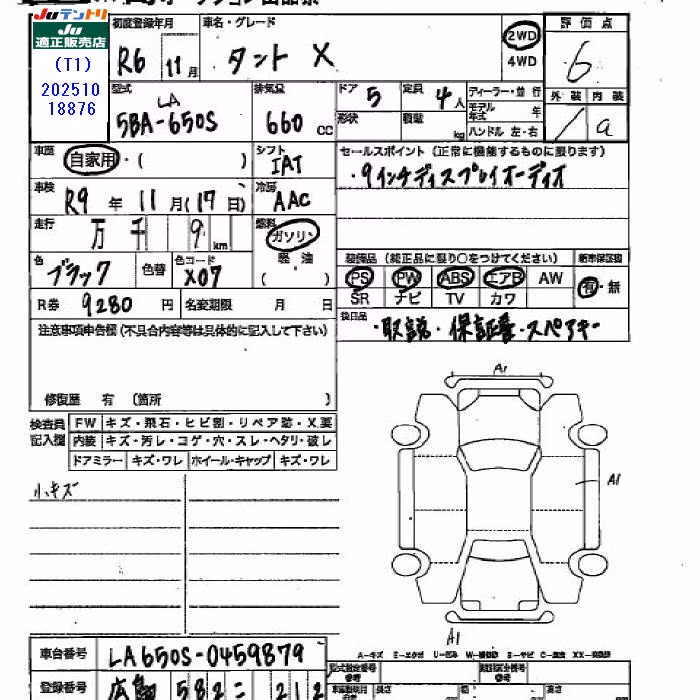 Juテントリ
Ju
適正販売店
(T1)
202510
18876
初度登録年月
R6 11月
車名・グレード
タント X
2WD
4WD
評価点
6
型式
LA
5BA-650S
排気量
660 CC
ドア
5
定員
4人
形状
積載
kg
ディーラー・並行
モデル年式 年
ハンドル 左・右
外装 内装
a
車歴
自家用・( )
シフト
IAT
セールスポイント (正常に機能するものに限ります)
・9インチディスプレイオーディオ
車検
R9 年 11 月 (17 日)
冷房
AAC
走行
万 千 9 km
燃料
ガソリン
軽油
( )
色
ブラック
色替
色コード
X07
装備品 (純正品に限り○をつけてください)
PS PW ABS エアB AW
SR ナビ TV カワ
新車保証書
有・無
R券 9280 円
名変期限 月 日
後日品
・取説・保証書・スペアキー
注意事項申告欄 (不具合内容等は具体的に記入して下さい)
修復歴 有 (箇所 )
検査員
記入欄
FW キズ・飛石・ヒビ割・リペア跡・X要
内装 キズ・汚レ・コゲ・穴・スレ・ヘタリ・破レ
ドアミラー キズ・ワレ ホイール・キャップ キズ・ワレ
小キズ
A1
A1
A1
車台番号 LA650S-0459879
登録番号 広島 582 こ 212